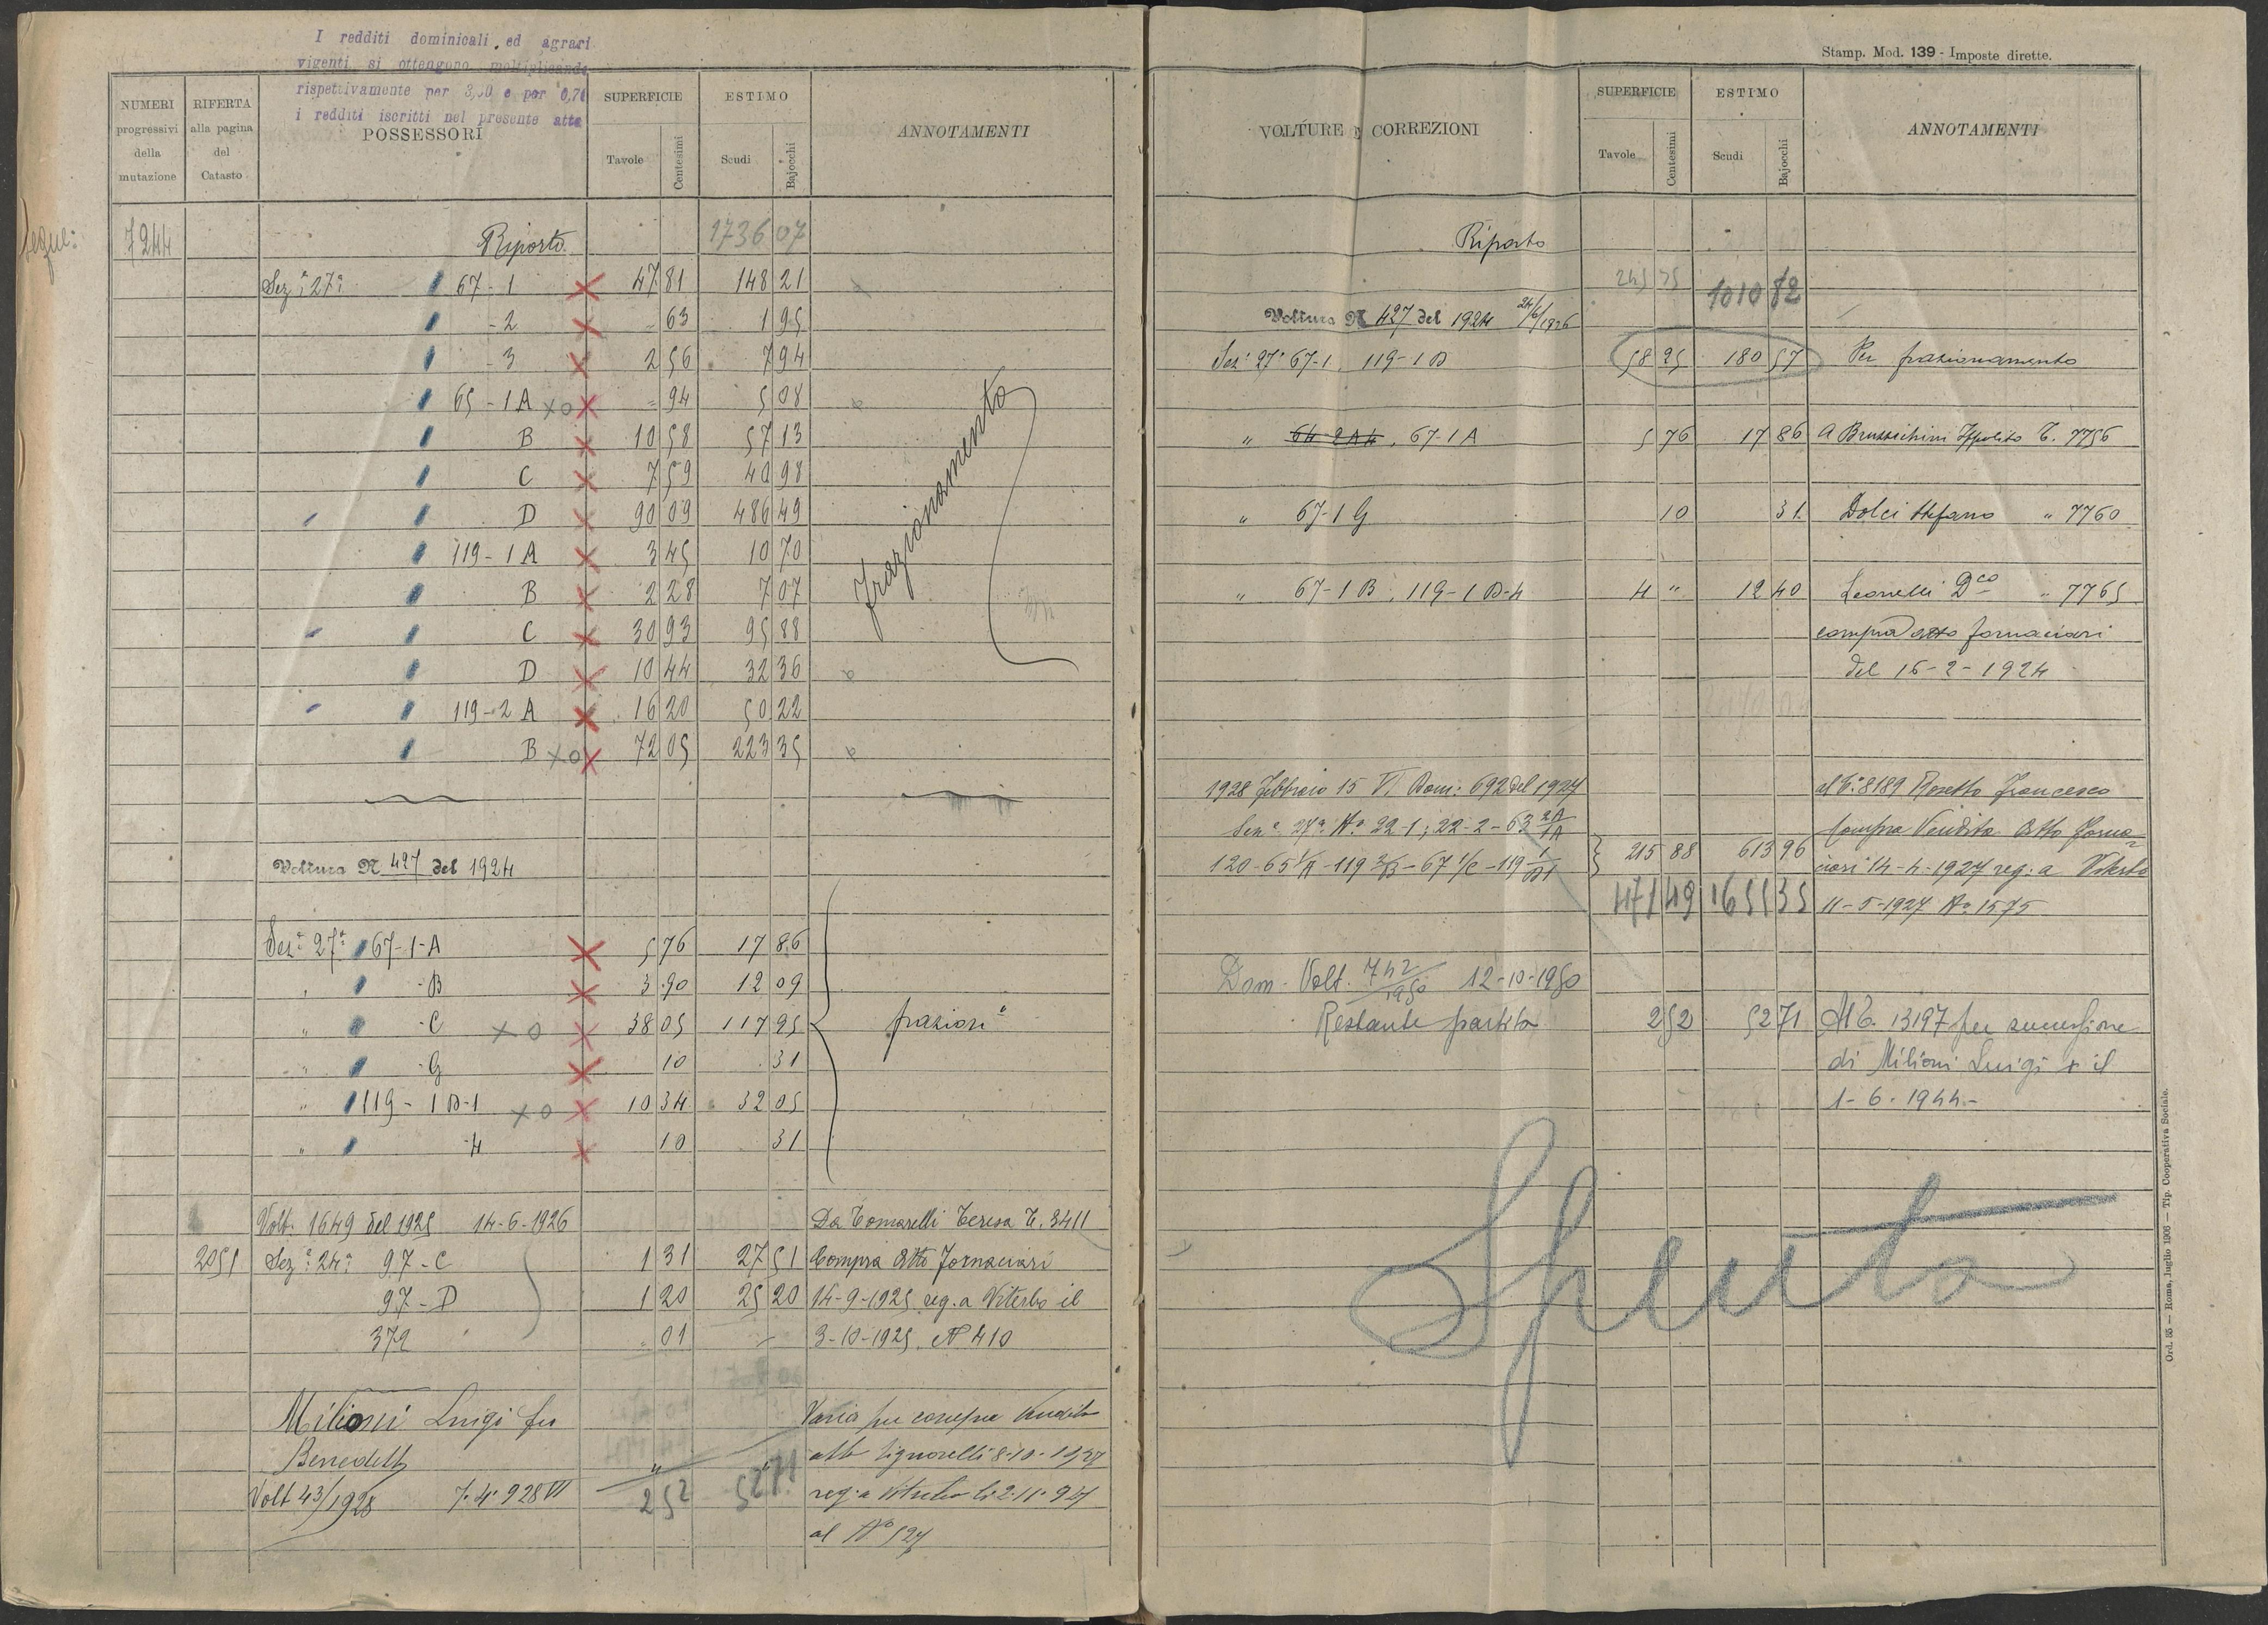 I redditi dominicali ed agrari
vigenti si ottengono moltiplicando
rispettivamente per 3,00 e per 0,70
i redditi iscritti nel presente atto
NUMERI progressivi della mutazione
RIFERTA alla pagina del Catasto
POSSESSORI
SUPERFICIE
Tavole Centesimi
ESTIMO
Scudi Bajocchi
ANNOTAMENTI
Segue:
7244 Riporto 1736 07
Sez.ª 27ª 67-1 47 81 148 21
-2 63 1 95
-3 2 56 7 94
65-1A XO 94 5 08
B 10 58 57 13
C 7 59 40 98
D 90 09 486 49
119-1A 3 45 10 70
B 2 28 7 07
C 30 93 95 88
D 10 44 32 36
119-2A 16 20 50 22
B XO 72 05 223 35
frazionamento
Voltura N 427 del 1924
Sez.ª 27ª 67-1-A 5 76 17 86
" -B 3 90 12 09
" -C XO 38 05 117 95 frazion.ᵉ
" -G 10 31
" 119-1D-1 XO 10 34 32 05
" -4 10 31
Volt. 1649 del 1925 14-6-1926 Da Tomarelli Teresa T. 3411
2051 Sez.ª 24ª 97-C 1 31 27 51 Compra Atto Fornaciari
97-D 1 20 25 20 14-9-1925 reg. a Viterbo il
372 " 01 3-10-1925 N 410
Milioni Luigi fu Varia per compra vendita
Benedetto " " atto Signorelli 8-10-1927
Volt 43/1928 7.4.928 VI 2 52 52 71 reg. a Viterbo li 2.11.927
al Nº 527
Stamp. Mod. 139 - Imposte dirette.
VOLTURE E CORREZIONI
SUPERFICIE
Tavole Centesimi
ESTIMO
Scudi Bajocchi
ANNOTAMENTI
Riporto
245 35 1010 82
Voltura N 427 del 1924 24/6/1926
Sez.ª 27ª 67-1. 119-1D 58 25 180 57 Per frazionamento
" 64-2A4, 67-1A 5 76 17 86 A Bruzzichini Ippolito T. 7756
" 67-1G 10 31 Dolci Stefano " 7760
" 67-1B, 119-1D-4 4 " 12 40 Leonelli Dco " 7765
compra atto Fornaciari
del 16-2-1924
1928 Febbraio 15 VI. Dom: 692 del 1927 al T. 8189 Rosetto Francesco
Sen.ª 27ª Nº 22-1; 22-2-63 2A/1A Compra Vendita Atto Forna=
120-65 1/A-119 2/B-67 1/C-119 1/D1 } 215 88 613 96 ciari 14-4-1927 reg: a Viterbo
471 49 1655 35 11-5-1927 Nº 1575
Dom. Volt. 742/1950 12-10-1950
Restante partita 2 52 52 71 Al T. 13197 per successione
di Milioni Luigi + il
1-6-1944.-
Spenta
Ord. 85 — Roma, luglio 1906 — Tip. Cooperativa Sociale.